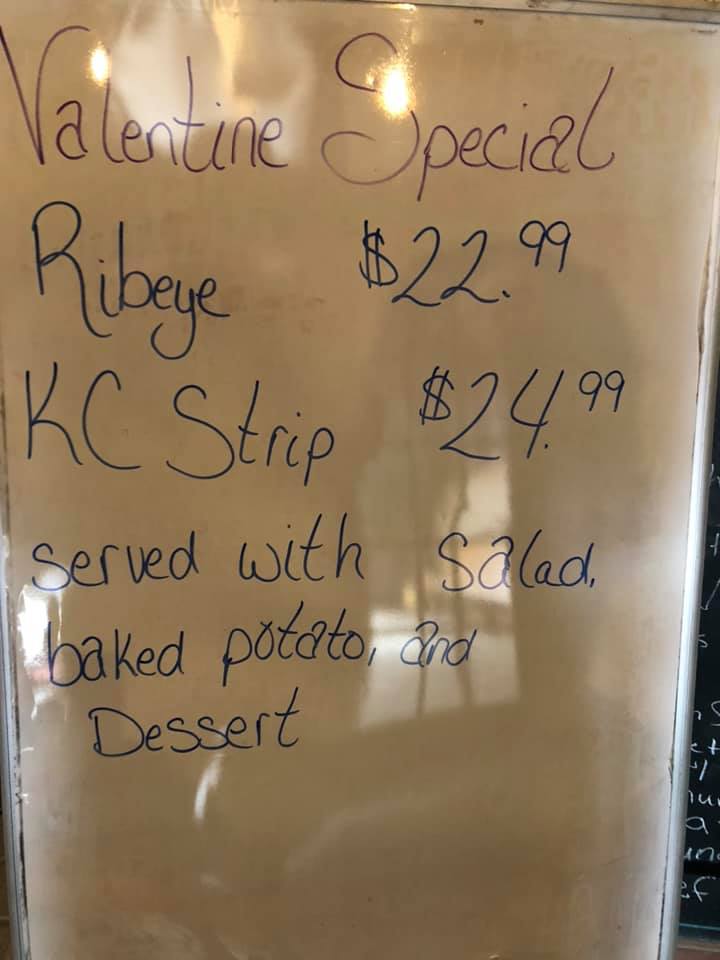 Valentine Special
Ribeye $22.99
KC Strip $24.99
served with Salad,
baked potato, and
Dessert